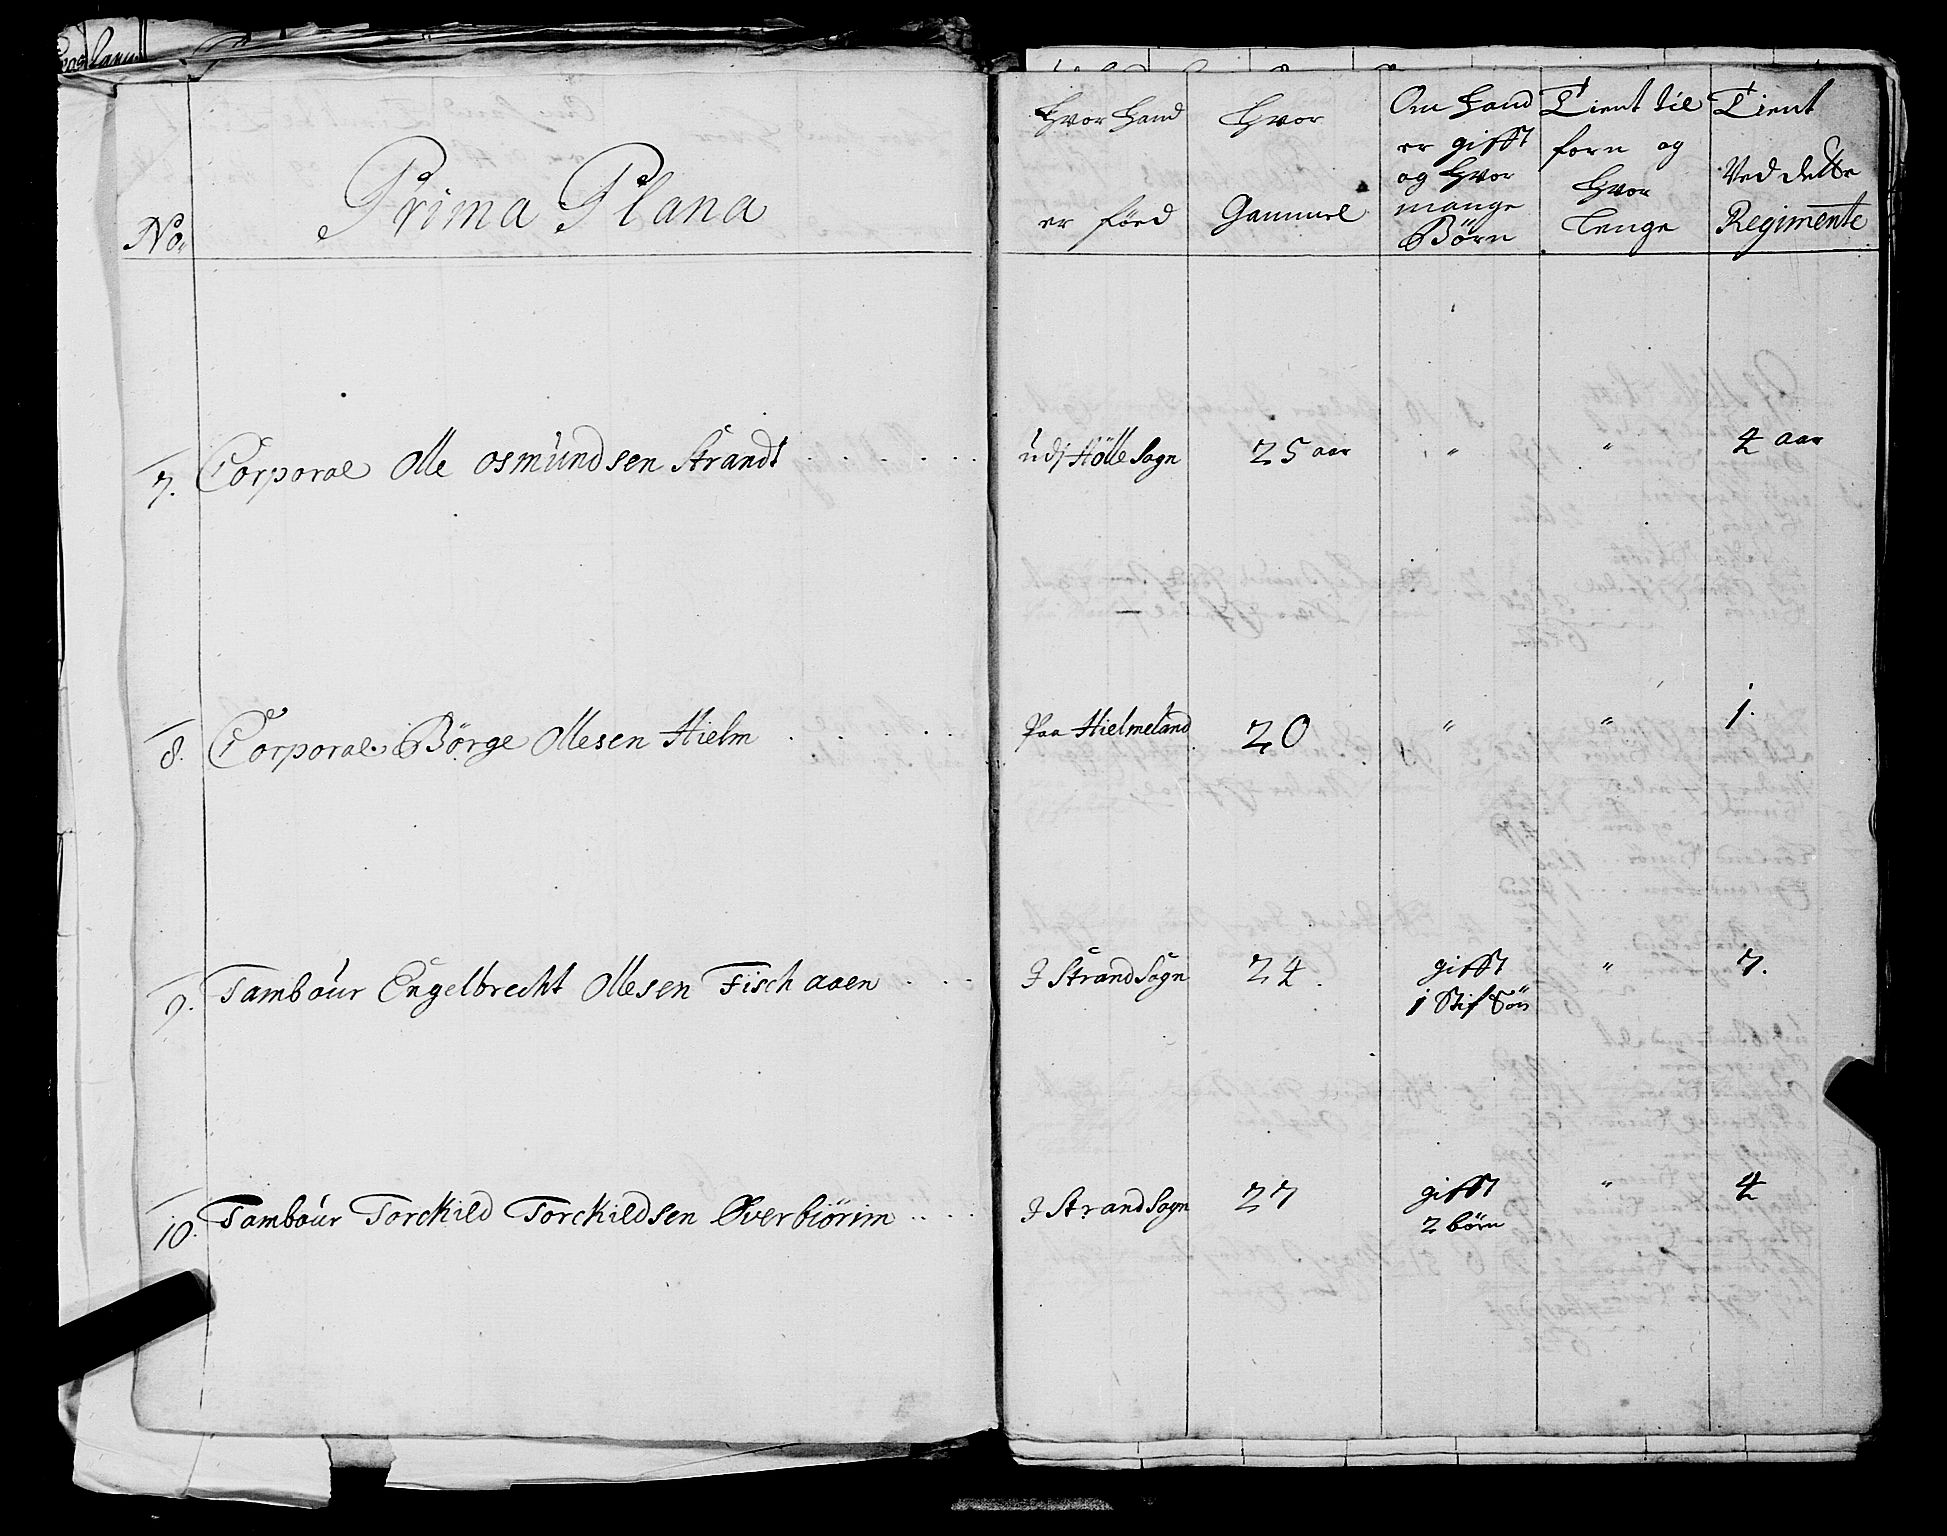 No.
Prima Plana
Hvor Hand
er föed
Hvor
Gammel
Om Hand
er gifft
og Hvor
mange
Börn
Tient til
forn og
Hvor
Lenge
Tient
Ved dette
Regimente
7. Corporal Olle Osmundsen Strandt . . . . . . udj Hölle Sogn 25 aar " " 4 aar
8. Corporal Börge Ollesen Hielm . . . . . Paa Hielmeland 20 " " 1.
9. Tambour Engelbrecht Ollesen Fisch aaen . . . J Strand Sogn 24. gifft " 7.
1 Stif Sön
10. Tambour Torckild Torckildsen Øverbiörim . . . . J Strand Sogn 27 gifft " 4
2 börn